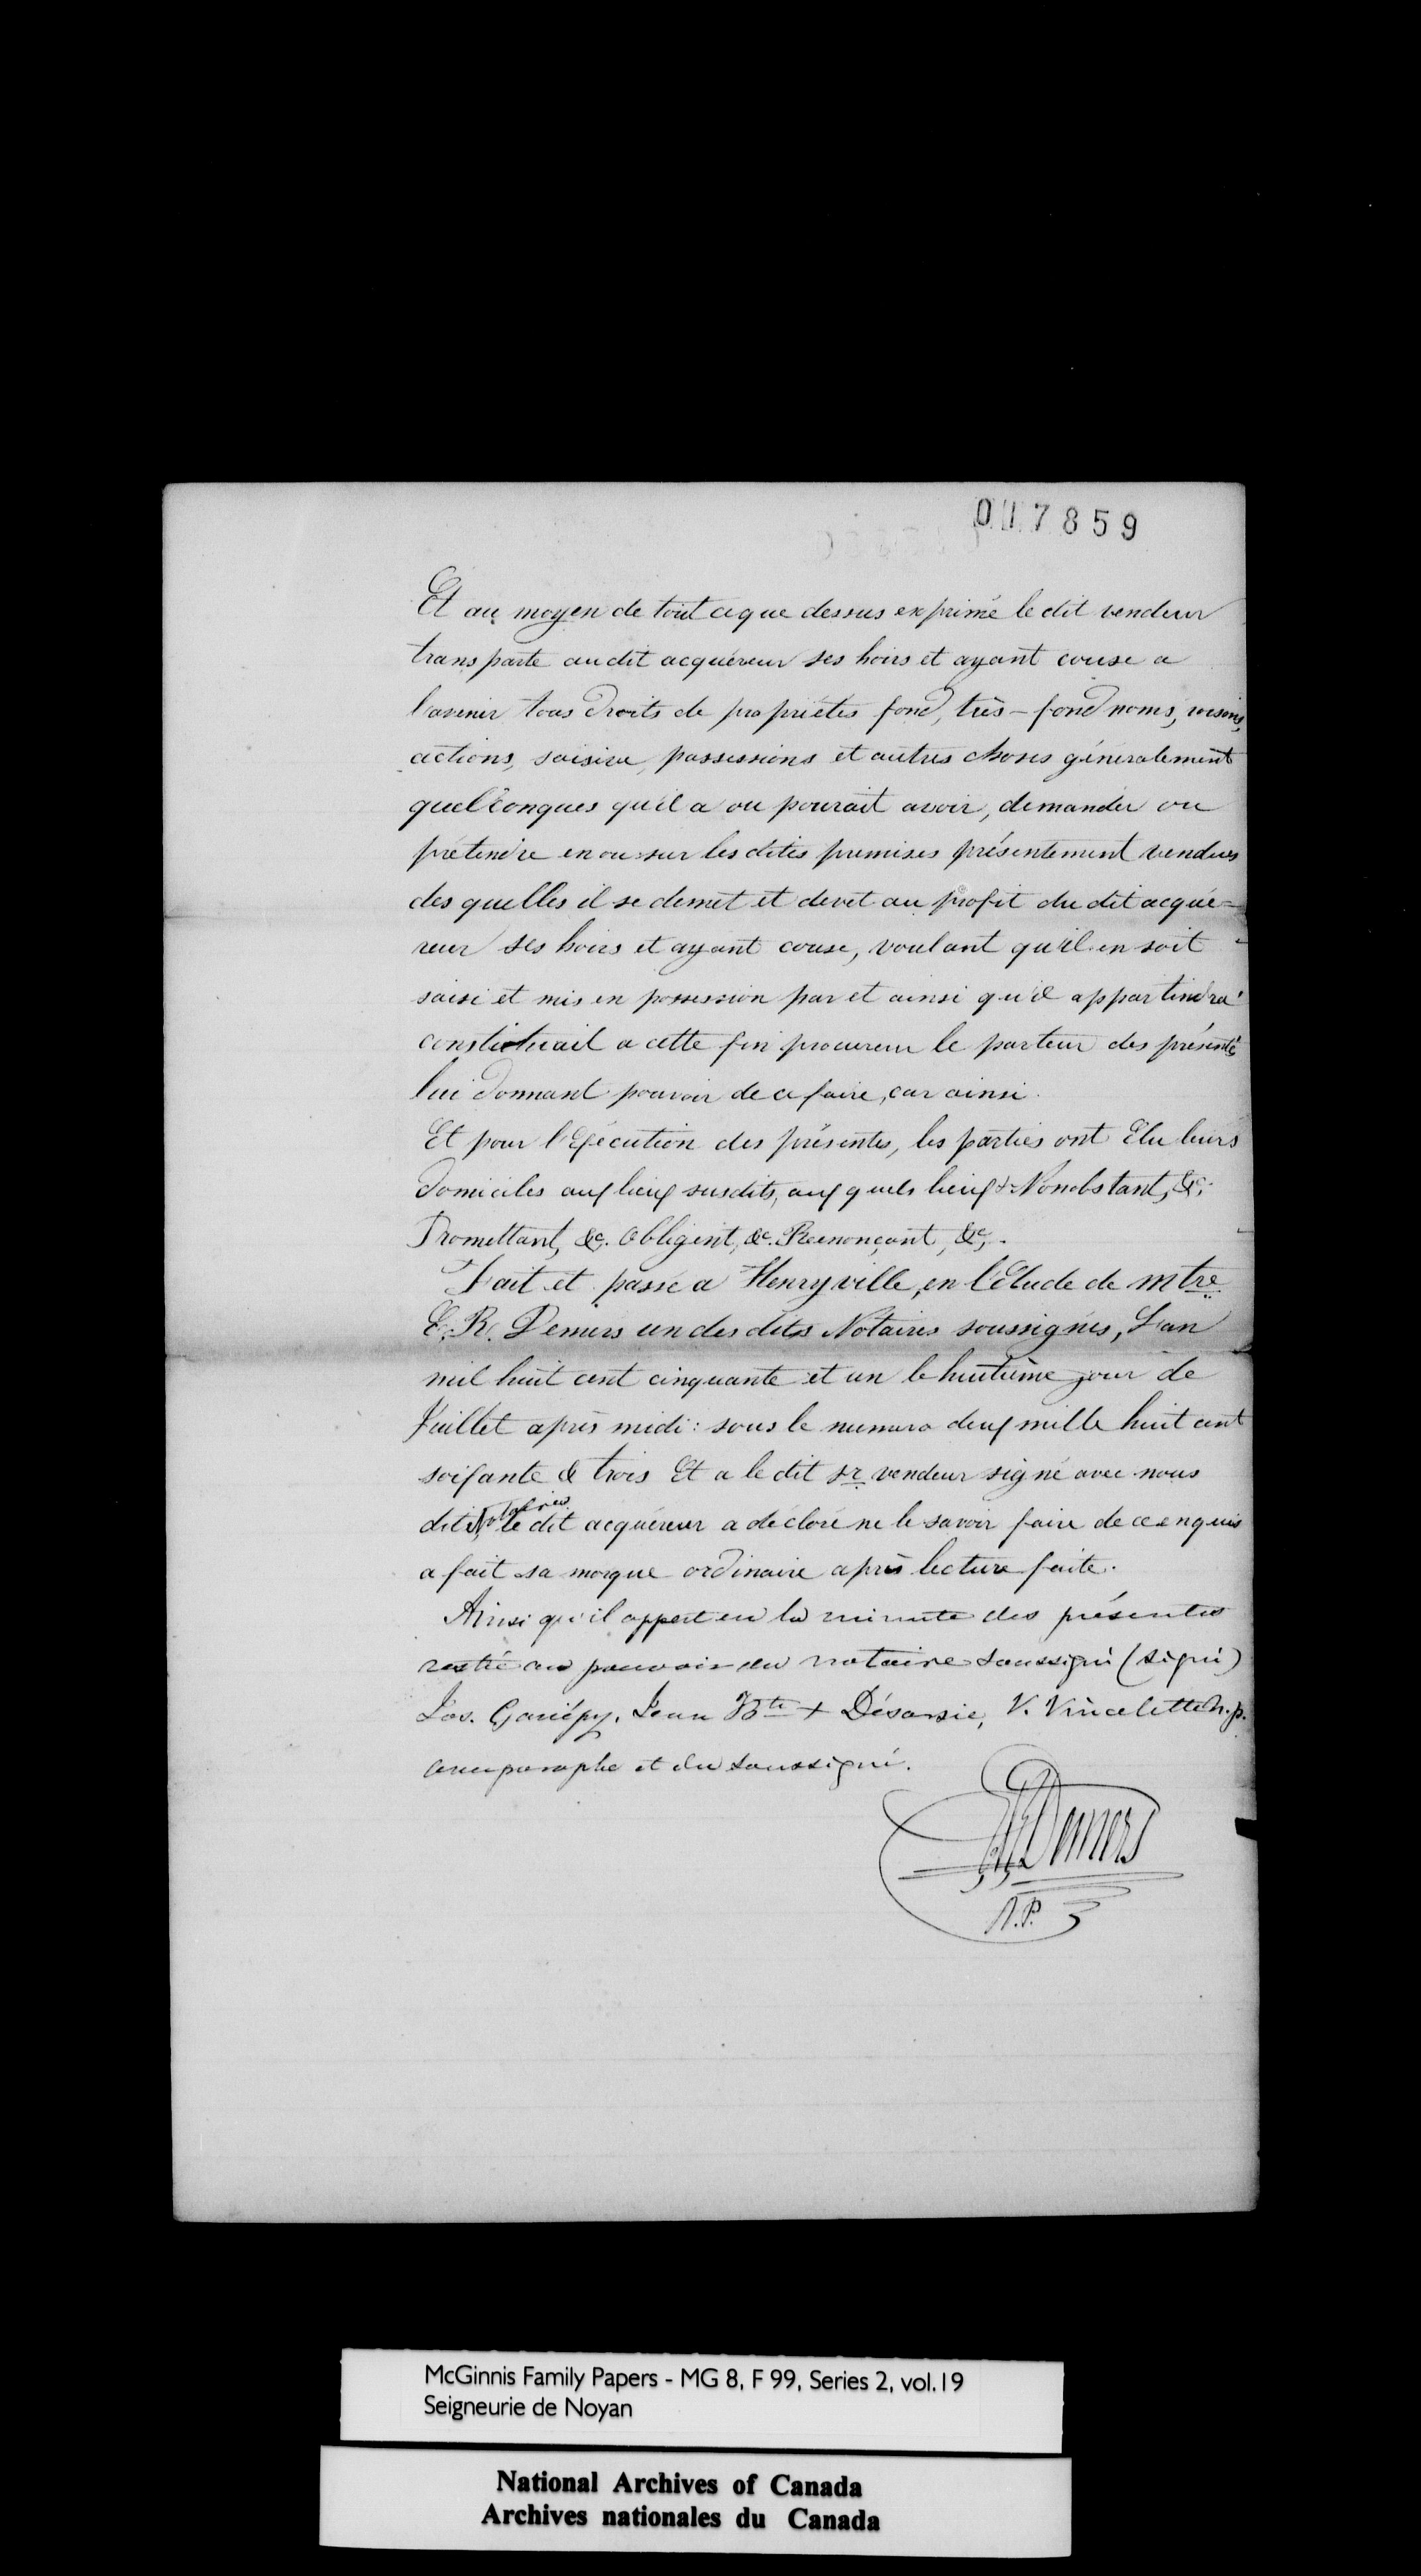 007859
Et au moyen de tout ce que dessus exprimé le dit vendeur
transporte audit acquéreur ses hoirs et ayant cause a
l'avenir tous droits de propriétés fond, très-fond noms, raisons,
actions, saisine, possessions et autres choses généralement
quelconques qu'il a ou pourait avoir, demander ou
prétendre en ou sur les dites premises présentement vendues
des quelles il se demet et devet au profit du dit acqué=
reur ses hoirs et ayant cause, voulant qu'il en soit
saisi et mis en possession par et ainsi qu'il appartindra
constituait a cette fin procureur le porteur des présente
lui donnant pouvoir de ce faire, car ainsi.
Et pour l'Exécution des présentes, les parties ont Elu leurs
domiciles aux lieux susdits, aux quels lieux & Nonobstant, &c.
Promettant, &c. Obligint, &c. Renonçant, &c.
Fait et passé a Henryville, en l'Etude de Mtre
E. R. Demers un des dits Notaires soussignés, L'an
mil huit cent cinquante et un le huitième jour de
Juillet après midi: sous le numero deux mille huit cent
soixante & trois Et a le dit sr vendeur signé avec nous
dits Notaires le dit acquéreur a déclaré ne le savoir faire de ce enquis
a fait sa marque ordinaire après lecture faite.
Ainsi qu'il appert en la minute des présentes
restée au pouvoir du notaire soussigné (signé)
Jos. Gariépy, Jean Bte + Désarsie, V. Vincelette n.p.
avec paraphe et du soussigné.
ERDemers
N.P.
McGinnis Family Papers - MG 8, F 99, Series 2, vol.19
Seigneurie de Noyan
National Archives of Canada
Archives nationales du Canada